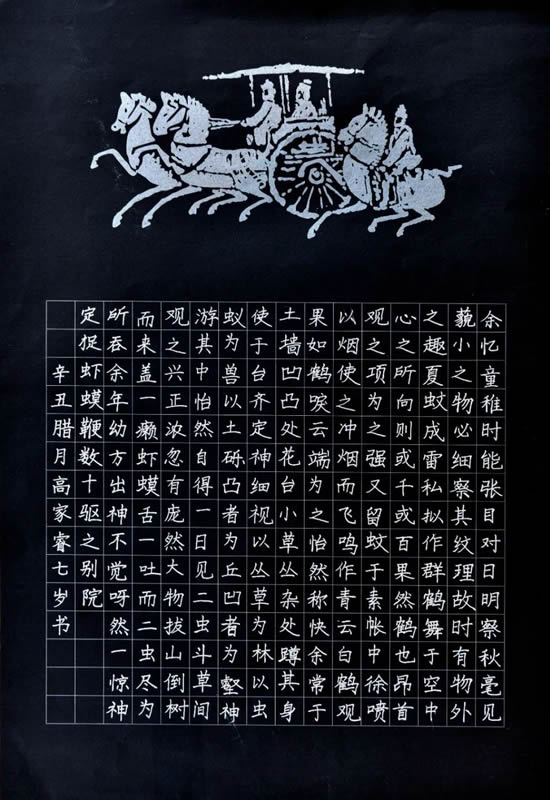 余忆童稚时能张目对日明察秋毫见
藐小之物必细察其纹理故时有物外
之趣夏蚊成雷私拟作群鹤舞于空中
心之所向则或千或百果然鹤也昂首
观之项为之强又留蚊于素帐中徐喷
以烟使之冲烟而飞鸣作青云白鹤观
果如鹤唳云端为之怡然称快余常于
土墙凹凸处花台小草丛杂处蹲其身
使于台齐定神细视以丛草为林以虫
蚁为兽以土砾凸者为丘凹者为壑神
游其中怡然自得一日见二虫斗草间
观之兴正浓忽有庞然大物拔山倒树
而来盖一癞虾蟆舌一吐而二虫尽为
所吞余年幼方出神不觉呀然一惊神
定捉虾蟆鞭数十驱之别院
辛丑腊月高家睿七岁书